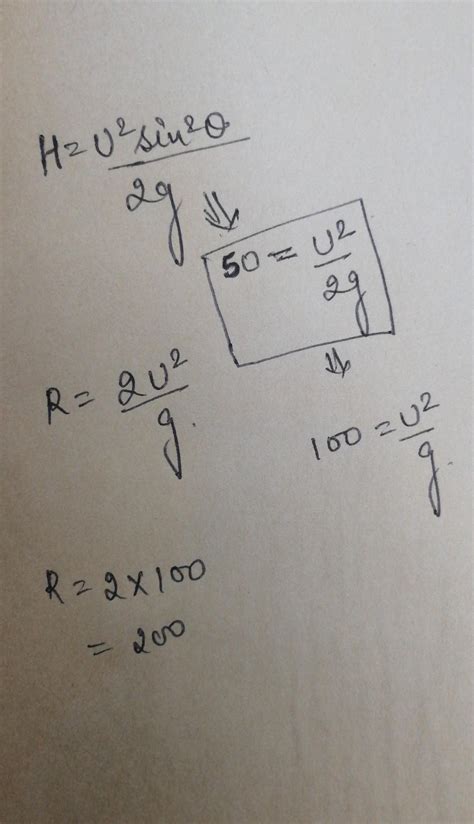 H = U² sin²θ / 2g
50 = U² / 2g
R = 2U² / g.
100 = U² / g.
R = 2 × 100
= 200